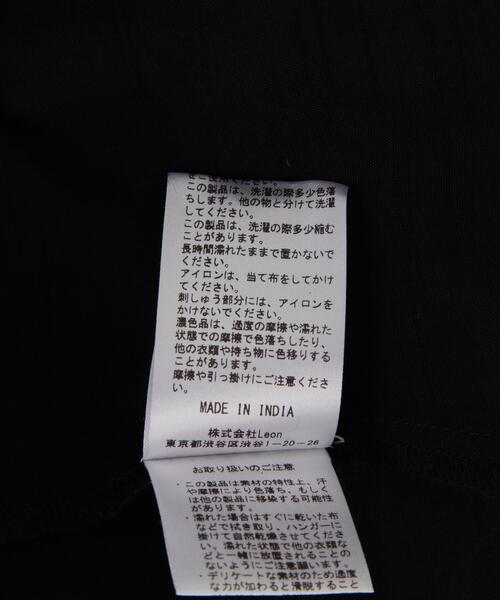 をご使用ください。
この製品は、洗濯の際多少色落
ちします。他の物と分けて洗濯
してください。
この製品は、洗濯の際多少縮む
ことがあります。
長時間濡れたままで置かないで
ください。
アイロンは、当て布をしてかけ
てください。
刺しゅう部分には、アイロンを
かけないでください。
濃色品は、過度の摩擦や濡れた
状態での摩擦で色落ちしたり、
他の衣類や持ち物に色移りする
ことがあります。
摩擦や引っ掛けにご注意くださ
い。
MADE IN INDIA
株式会社Leon
東京都渋谷区渋谷1-20-26
お取り扱いのご注意
・この製品は素材の特性上、汗
や摩擦により色落ち、もしく
は他の製品に移染する可能性
があります。
・濡れた場合はすぐに乾いた布
などで拭き取り、ハンガーに
掛けて自然乾燥させてくださ
い。濡れた状態で他の衣類な
どと一緒に放置されることの
ないようにご注意願います。
・デリケートな素材のため過度
な力が加わると滑脱すること